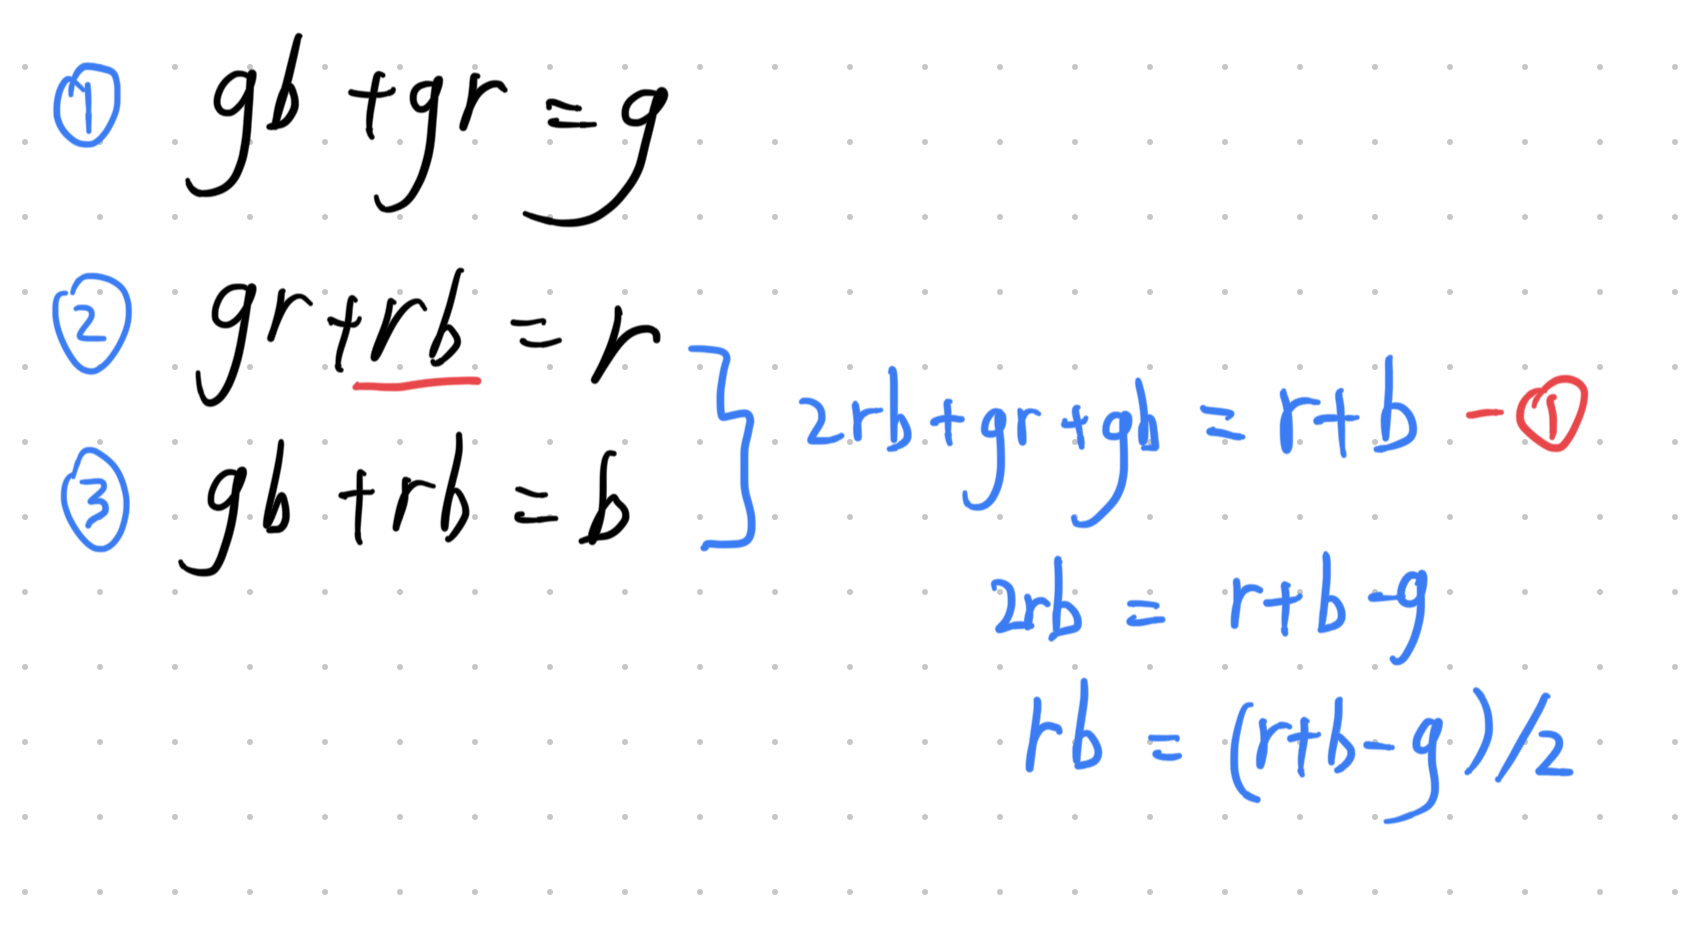 ① gb + gr = g
② gr + rb = r
③ gb + rb = b
2rb + gr + gb = r + b - ①
2rb = r + b - g
rb = (r + b - g)/2